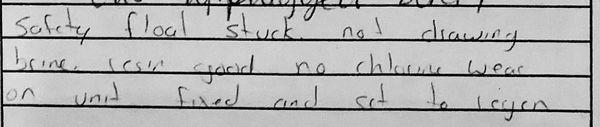 Safety float stuck. not drawing
brine. resin good no chlorine wear
on unit fixed and set to regen